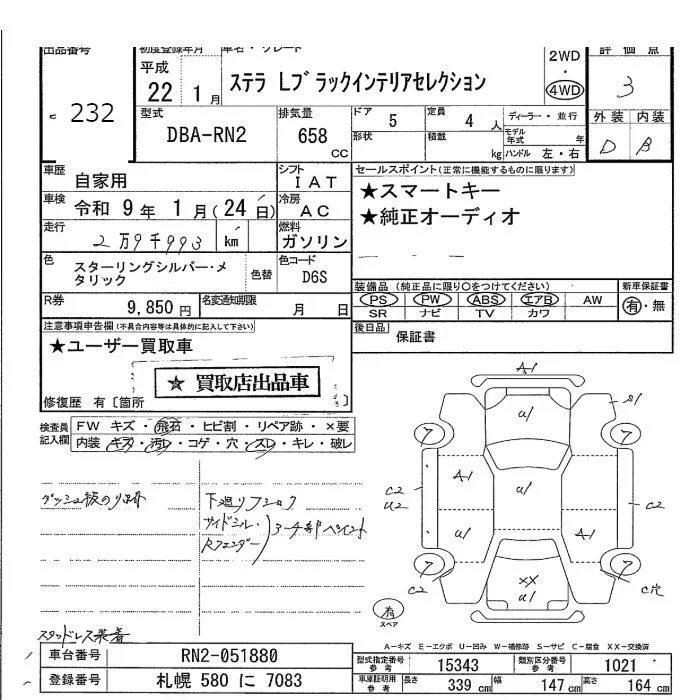 出品番号 初度登録年月 車名・グレード 評価点
232
平成 22 1 月
ステラ Lブラックインテリアセレクション
2WD ・ 4WD
3
型式 DBA-RN2
排気量 658 CC
ドア 5 定員 4 人
形状 積載 kg
ディーラー・並行
モデル年式 年
ハンドル 左・右
外装 内装
D B
車歴 自家用
シフト I A T
車検 令和 9 年 1 月(24 日)
冷房 A C
走行 2万9千993 km
燃料 ガソリン
色 スターリングシルバー・メタリック
色替
色コード D6S
R券 9,850 円
名変通知期限 月 日
セールスポイント(正常に機能するものに限ります)
★スマートキー
★純正オーディオ
装備品(純正品に限り○をつけてください)
PS PW ABS エアB AW
SR ナビ TV カワ
新車保証書
有・無
後日品 保証書
注意事項申告欄(不具合内容等は具体的に記入して下さい)
★ユーザー買取車
☆ 買取店出品車
修復歴 有〔箇所 〕
検査員記入欄
FW キズ・飛石・ヒビ割・リペア跡・×要
内装 キズ・汚レ・コゲ・穴・スレ・キレ・破レ
下廻りフロック
サイドシル・
Rフェンダー
アーチ部ペイント
スタッドレス装着
A1
U1
S1
7
7
A1
U1
C2
U2
C2
U1
A1
7
7
C2
C穴
XX
U1
有
スペア
A-キズ E-エクボ U-凹み W-補修跡 S-サビ C-腐食 XX-交換済
車台番号 RN2-051880
登録番号 札幌 580 に 7083
型式指定番号 参考 15343
類別区分番号 参考 1021
車庫証明用 参考 長さ 339 cm 幅 147 cm 高さ 164 cm